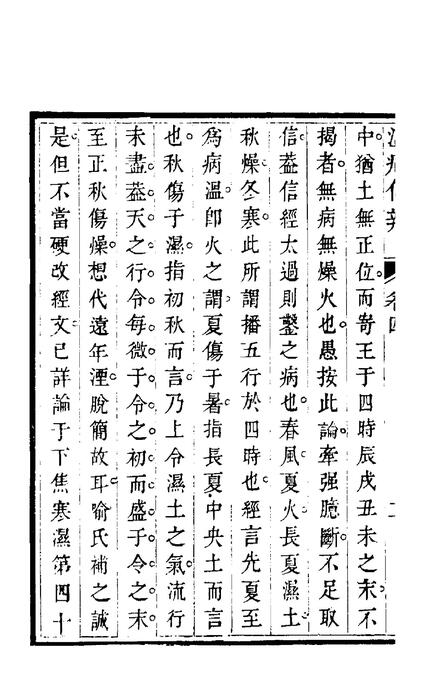 卷四
中。猶土無正位。而寄王于四時辰戌丑未之末。不
揭者。無病無燥火也。愚按此論。牽强臆斷。不足取
信。葢信經太過則鑿之病也。春風夏火長夏濕土。
秋燥。冬寒。此所謂播五行於四時也。經言先夏至
爲病溫。卽火之謂。夏傷于暑。指長夏中央土而言
也。秋傷于濕。指初秋而言。乃上令濕土之氣。流行
未盡。葢天之行令。每微于令之初。而盛于令之末。
至正秋傷燥。想代遠年湮。脫簡故耳。喻氏補之誠
是。但不當硬改經文。已詳論于下焦寒濕第四十